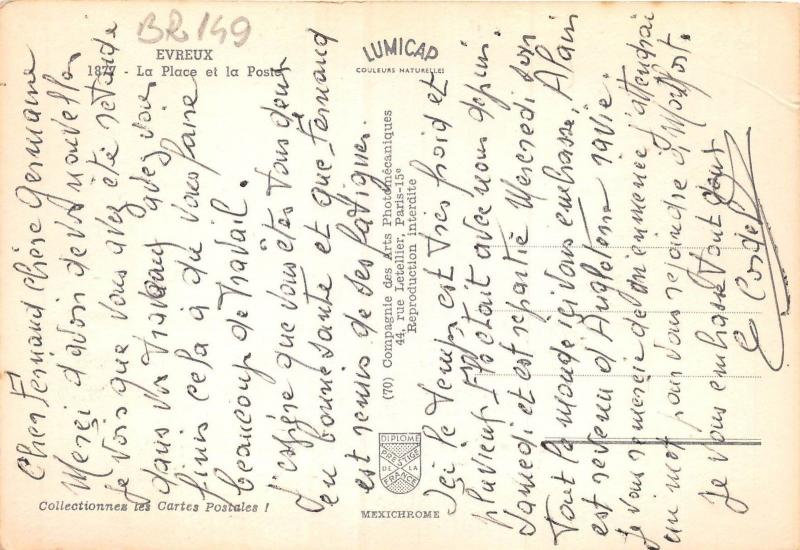 BR 149
EVREUX
187 - La Place et la Poste
LUMICAP
COULEURS NATURELLES
Cher Fernand chère Germaine
Merci d'avoir de vos nouvelles
Je vois que vous avez été retardé
dans vos travaux avez vous
finis cela a du vous faire
beaucoup de travail.
J'espère que vous êtes tous deux
en bonne santé et que Fernand
est remis de ses fatigues.
(70) Compagnie des Arts Photomécaniques
44, rue Letellier, Paris-15e
Reproduction interdite
Ici le temps est très froid et
pluvieux était avec nous depuis
Samedi et est repartie Mercredi soir
Tout le monde ici vous embrasse, Alain
est revenu d'Angleterre ravie.
Je vous remercie de m'emmener j'attendrai
un mot pour vous rejoindre à Montfort.
Je vous embrasse tout deux
DIPLOME
PRESTIGE
DE LA
FRANCE
MEXICHROME
Collectionnez les Cartes Postales !